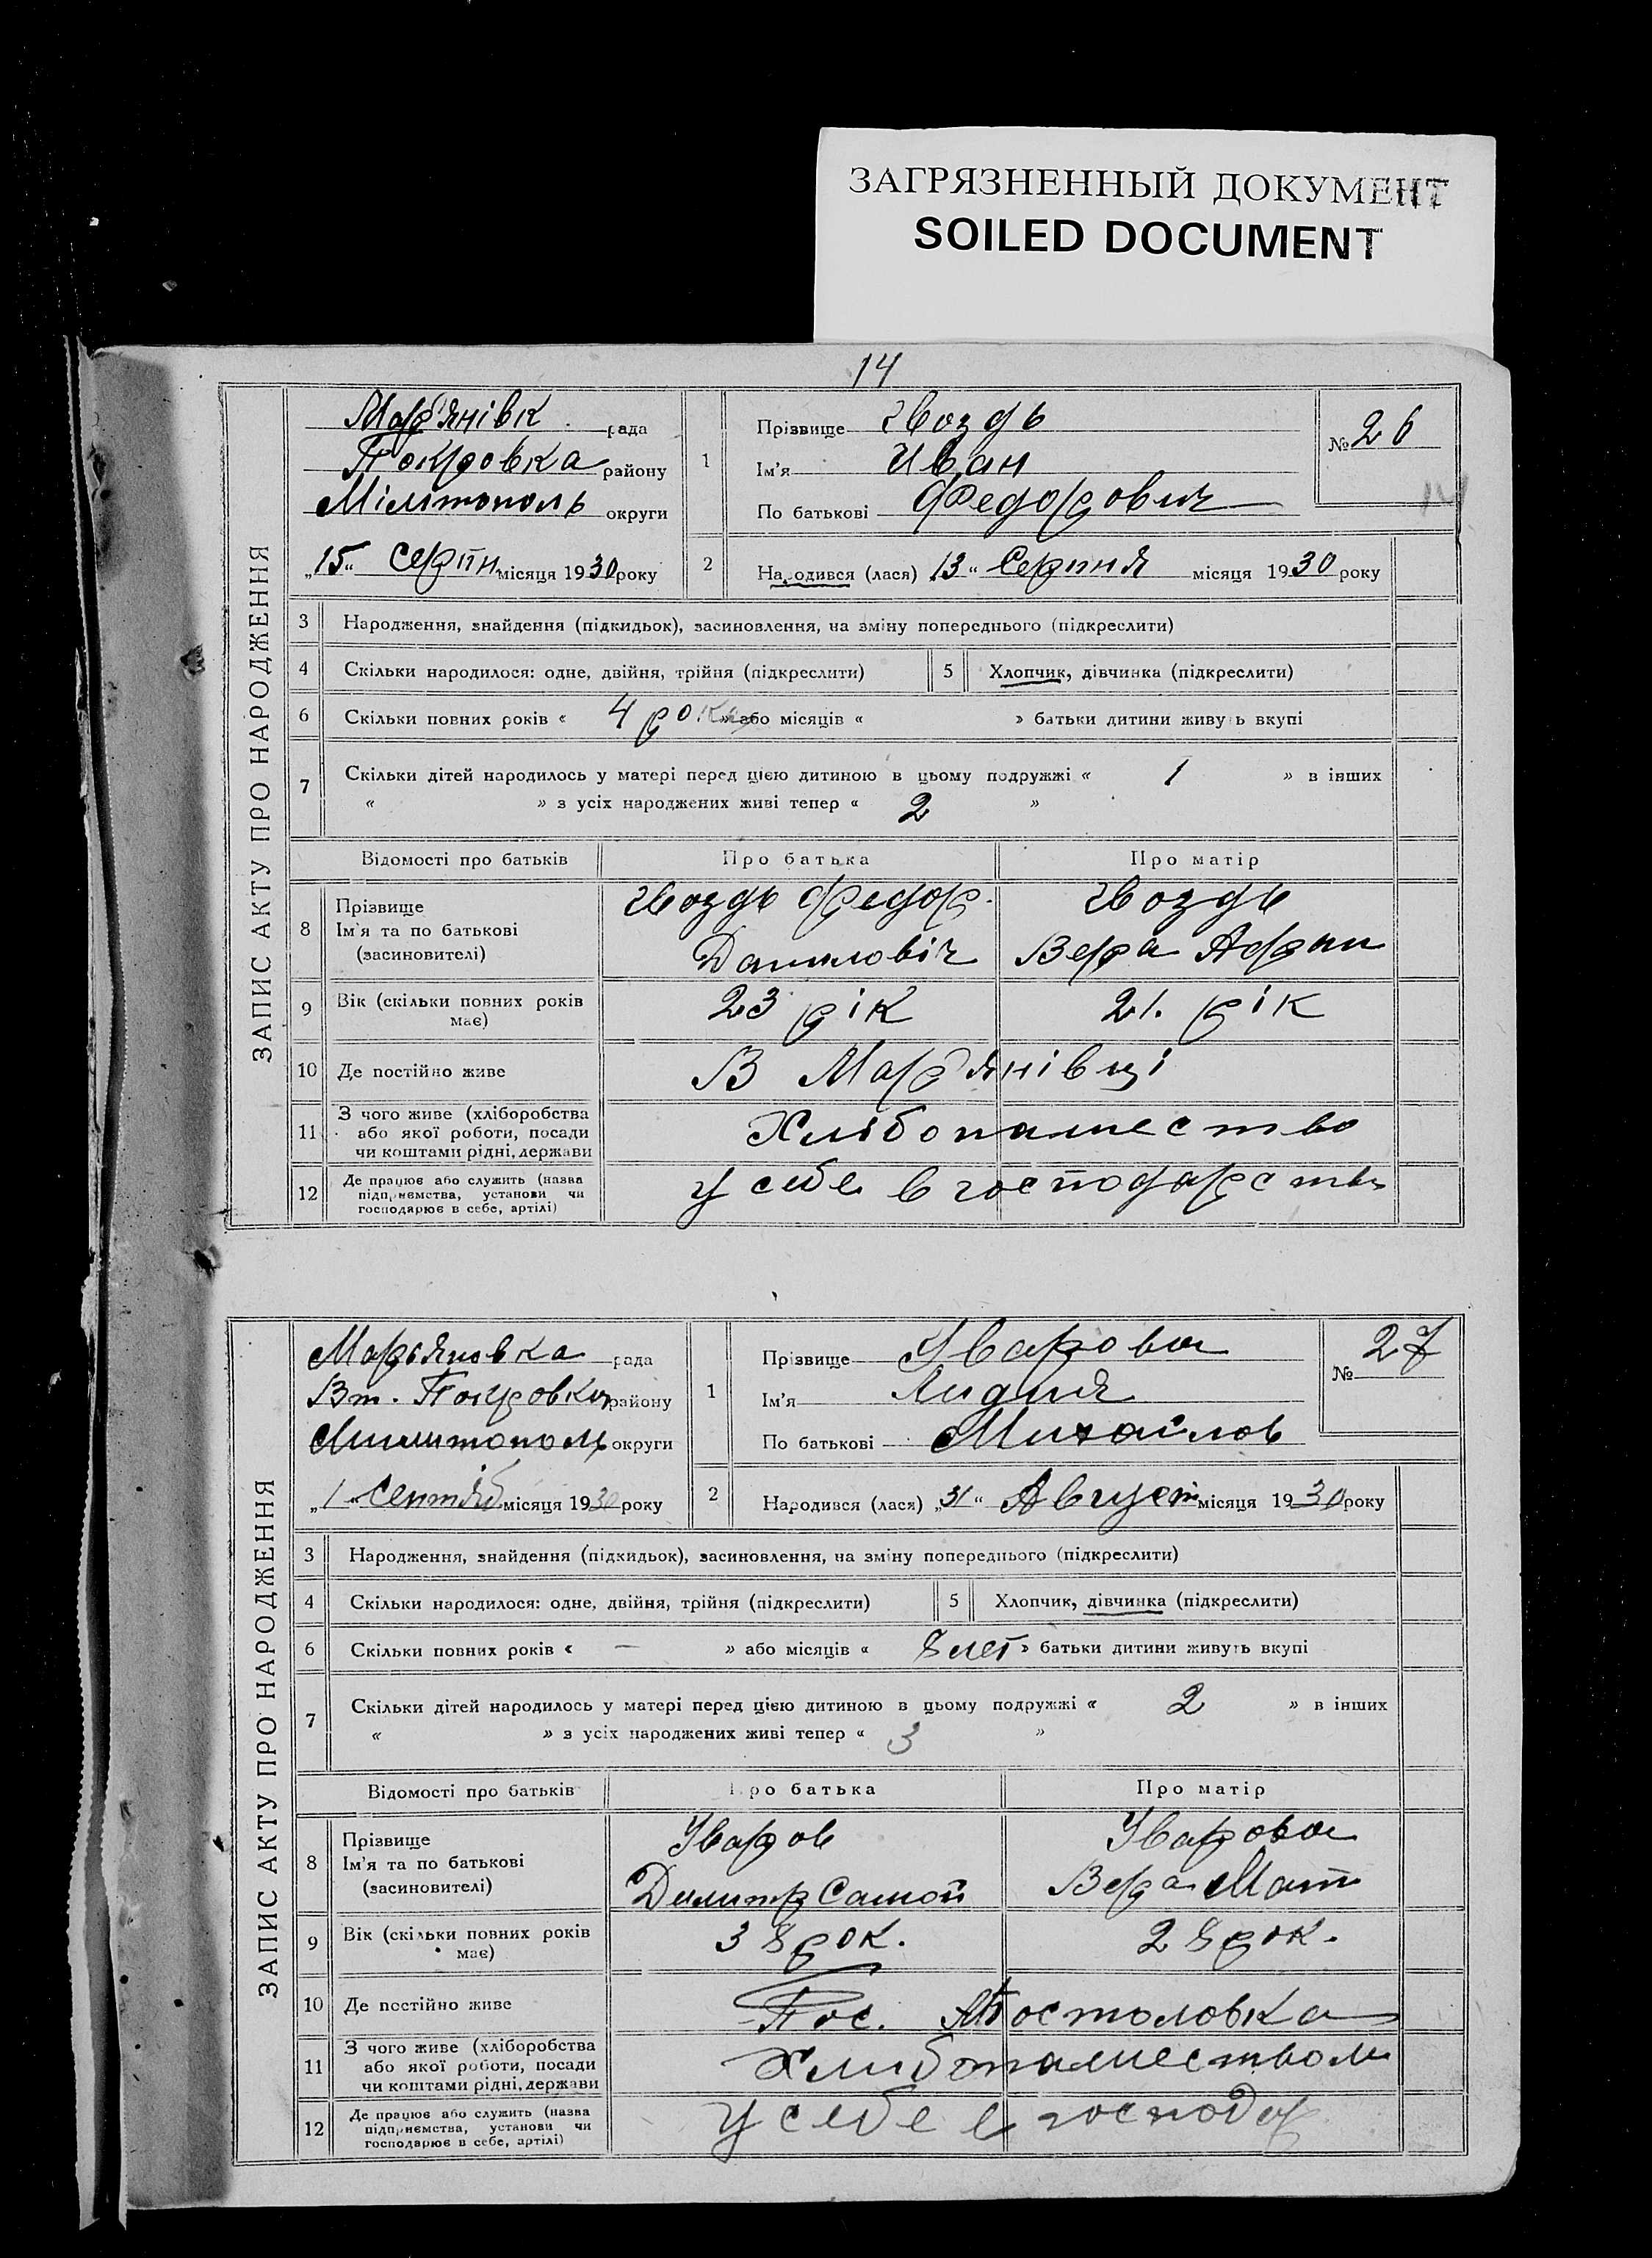 ЗАГРЯЗНЕННЫЙ ДОКУМЕНТ
SOILED DOCUMENT
14
ЗАПИС АКТУ ПРО НАРОДЖЕННЯ
Мар'янівк рада
Покровка району
Мілітополь округи
„15“ Серпн місяця 1930 року
1
Прізвище Гвоздь
Ім'я Иван
По батькові Федорович
№ 26
14
2
Народився (лася) 13 “ Серпня місяця 1930 року
3 Народження, знайдення (підкидьок), засиновлення, на зміну попереднього (підкреслити)
4 Скільки народилося: одне, двійня, трійня (підкреслити) 5 Хлопчик, дівчинка (підкреслити)
6 Скільки повних років « 4 рок » або місяців « » батьки дитини живуть вкупі
7 Скільки дітей народилось у матері перед цією дитиною в цьому подружжі « 1 » в інших
« » з усіх народжених живі тепер « 2 »
Відомості про батьків Про батька Про матір
8 Прізвище
Ім'я та по батькові
(засиновителі)
Гвоздь Федор.
Даниловіч
Гвоздь
Вера
9 Вік (скільки повних років
має)
23 рік 21. рік
10 Де постійно живе В Мар'янівці
11 З чого живе (хліборобства
або якої роботи, посади
чи коштами рідні, держави
Хлібопашество
12 Де працює або служить (назва
підприємства, установи чи
господарює в себе, артілі)
у себе в господарстві
ЗАПИС АКТУ ПРО НАРОДЖЕННЯ
Марьяновка рада
Вт. Покровка району
Милитополь округи
„1“ Сентяб місяця 1930 року
1
Прізвище Уварова
Ім'я Лидия
По батькові Михайлов
№ 27
2
Народився (лася) „31“ Август місяця 1930 року
3 Народження, знайдення (підкидьок), засиновлення, на зміну попереднього (підкреслити)
4 Скільки народилося: одне, двійня, трійня (підкреслити) 5 Хлопчик, дівчинка (підкреслити)
6 Скільки повних років « — » або місяців « 8 лет » батьки дитини живуть вкупі
7 Скільки дітей народилось у матері перед цією дитиною в цьому подружжі « 2 » в інших
« » з усіх народжених живі тепер « 3 »
Відомості про батьків Про батька Про матір
8 Прізвище
Ім'я та по батькові
(засиновителі)
Уваров
Димитр Самой
Уварова
Вера Мат
9 Вік (скільки повних років
має)
38 рок. 28 рок.
10 Де постійно живе Пос. Апостоловка
11 З чого живе (хліборобства
або якої роботи, посади
чи коштами рідні, держави
Хлибопашеством
12 Де працює або служить (назва
підприємства, установи чи
господарює в себе, артілі)
у себе в господар